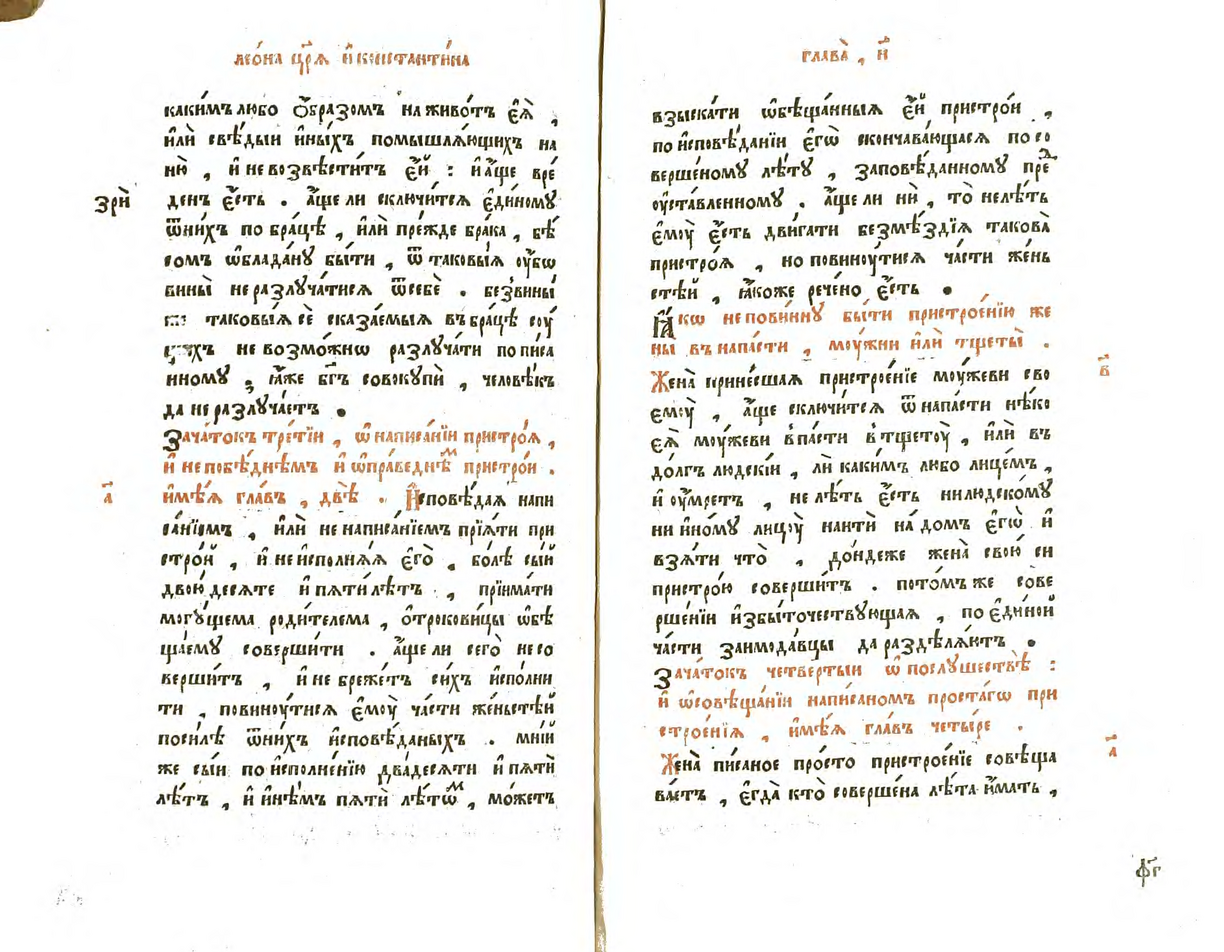 леѡ́на цр҃ѧ̀ и҆ константи́на
каки́мъ любо ѻ҆́бразомъ на живо́тъ є҆ѧ̀ ,
и҆лѝ свѣ́дыи и҆ны́хъ помышлѧ́ющихъ на
ню̀ , и҆ не возвѣсти́тъ є҆́й : и҆ а҆́ще вре
зрѝ
де́нъ є҆́сть . а҆́ще ли сключи́тсѧ є҆ди́ному
ѿ ни́хъ по бра́цѣ , и҆лѝ пре́жде бра́ка , бѣ́
сомъ ѡ҆блада́ну бы́ти , ѿ таковы́ѧ ᲂу҆́бѡ
вины̀ не разлуча́тисѧ ѿ себѐ . без̾ вины́
таковы́ѧ сѐ сказа́емыѧ въ бра́цѣ соу́
не возмо́жнѡ разлуча́ти по писа
нному , ꙗ҆́же бг҃ъ совокупѝ , человѣ́къ
да не разлуча́етъ .
Зача́токъ тре́тїи , ѡ҆ написа́нїи пристро́ѧ ,
и҆ не побѣ́днѣмъ и҆ ѡ҆пра́веднѣм пристро́и .
а҃
и҆мѣ́ѧ гла́въ , двѣ̀ . И҆сповѣ́даѧ напи
са́нїемъ , и҆лѝ не написа́нїемъ прїѧ́ти при
стро́й , и҆ не и҆сполнѧ́ѧ є҆гѡ̀ , бо́лѣ сы́й
двою́ десѧте и҆ пѧти́ лѣ́тъ , прїима́ти
могу́щема роди́телема , ѻ҆трокови́цы ѡ҆бѣ
ща́ему соверши́ти . а҆́ще ли сего̀ не со
верши́тъ , и҆ не бреже́тъ си́хъ и҆спо́лни
ти , повиноу́тисѧ є҆моу̀ ча́сти же́ньстѣй
по си́лѣ ѿ ни́хъ и҆сповѣ́даных . мні́й
же сы́и по и҆сполне́нїю два́десѧти и҆ пѧтѝ
лѣ́тъ , и҆ и҆нѣ́мъ пѧтѝ лѣ́тѡм , мо́жетъ
глава̀ , и҃
взыска́ти ѡ҆бѣща́нныѧ є҆́й пристро́и ,
по и҆сповѣ́данїи є҆гѡ̀ сконча́вающасѧ по со
верше́ному лѣ́ту , заповѣ́данному пред
ᲂу҆ста́вленному . а҆́ще ли нѝ , то̀ не лѣ́ть
є҆моу̀ є҆́сть дви́гати безме́здїѧ такова̀
пристро́ѧ , но повиноу́тисѧ ча́сти же́нь
стѣй , ꙗ҆́коже рече́но є҆́сть .
Ꙗ҆́кѡ не пови́нну бы́ти пристрое́нїю же
ны̀ въ напа́сти , моу́жни и҆лѝ тщеты̀ .
в҃
Жена̀ принесшаѧ пристрое́нїе моу́жеви сво
є҆моу̀ , а҆́ще сключи́тсѧ ѿ напа́сти нѣ́ко
еѧ̀ моу́жеви впа́сти в тщетоу̀ , и҆лѝ въ
до́лгъ людскі́и , лѝ каки́мъ либо лице́мъ ,
и҆ ᲂу҆́мретъ , не лѣ́ть є҆́сть ни людско́му
ни и҆но́му лицоу̀ наитѝ на до́мъ є҆гѡ̀ и҆
взѧ́ти что̀ , до́ндеже жена̀ свою̀ си
пристро́ю соверши́тъ . пото́мъ же сове
рше́нїи и҆збы́точествующаѧ , по є҆ди́ной
ча́сти заимода́вцы да раздѣлѧ́ютъ .
Зача́токъ четве́ртыи ѡ҆ послу́шествѣ :
и҆ ѡ҆ совѣща́нїи написа́ном проста́гѡ при
строе́нїѧ , и҆мѣ́ѧ гла́въ четы́ре .
а҃
Жена̀ пи́саное про́сто пристрое́нїе совѣща
ва́етъ , є҆гда̀ кто̀ соверше́на лѣ́та и҆́мать ,
фг҃